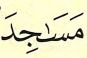 مَسَـٰجِدَ